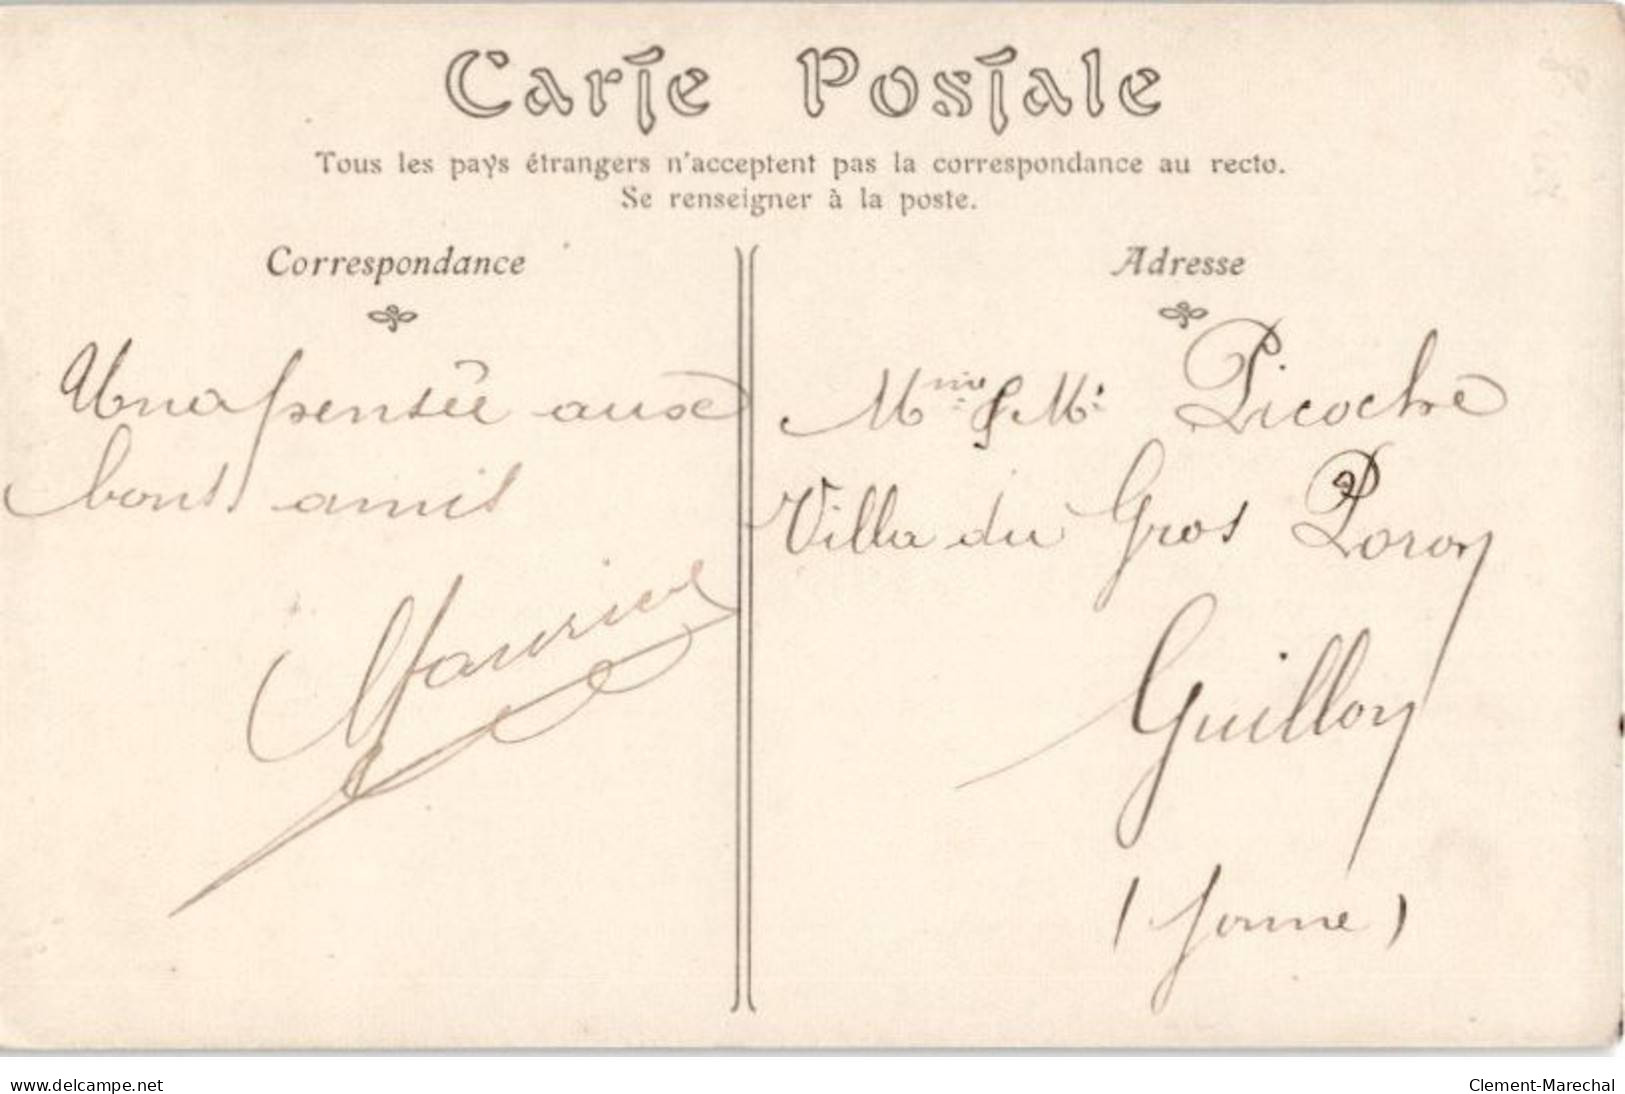 Carte Postale
Tous les pays étrangers n'acceptent pas la correspondance au recto.
Se renseigner à la poste.
Correspondance
Une pensée aux
bons amis
Maurice
Adresse
Mme & Mr Picoche
Villa du Gros Poron
Guillon
(Yonne)
www.delcampe.net
Clement-Marechal